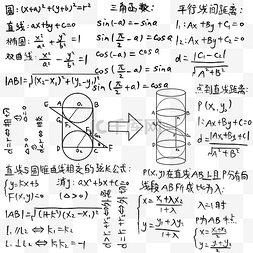 圆:(x+a)²+(y+b)²=r²
直线:ax+by+c=0
椭圆:x²/a²+y²/b²=1
双曲线:x²/a²-y²/b²=1
|AB|=√(x₂-x₁)²+(y₂-y₁)²
三角函数:
sin(-a)=-sina
sin(π/2-a)=cosa
cos(-a)=cosa
cos(π/2-a)=sina
sin(π/2+a)=cosa
平行线间距离:
l₁:Ax+By+C₁=0
l₂:Ax+By+C₂=0
d=|C₁-C₂|/√A²+B²
点到直线距离:
P(x,y)
l:Ax+By+C=0
d=|Ax+By+C|/√A²+B²
直线与圆锥曲线相交的弦长公式:
{y=kx+b
F(x,y)=0
消y:ax²+bx+c=0
(△>0)
|AB|=√(1+k²)(x₂-x₁)²
l₁//l₂⇔k₁=k₂
l₁⊥l₂⇔k₁k₂=-1
P(x,y)在直线AB上且P分有向
线段AB所成比为λ
{x=x₁+λx₂/1+λ
y=y₁+λy₂/1+λ
λ=1时
P为AB中点
{x=x₁+x₂/2
y=y₁+y₂/2